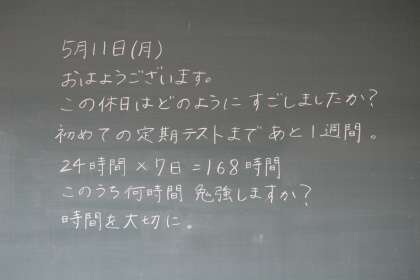 5月11日(月)
おはようございます。
この休日はどのようにすごしましたか？
初めての定期テストまであと1週間。
24時間×7日=168時間
このうち何時間勉強しますか？
時間を大切に。